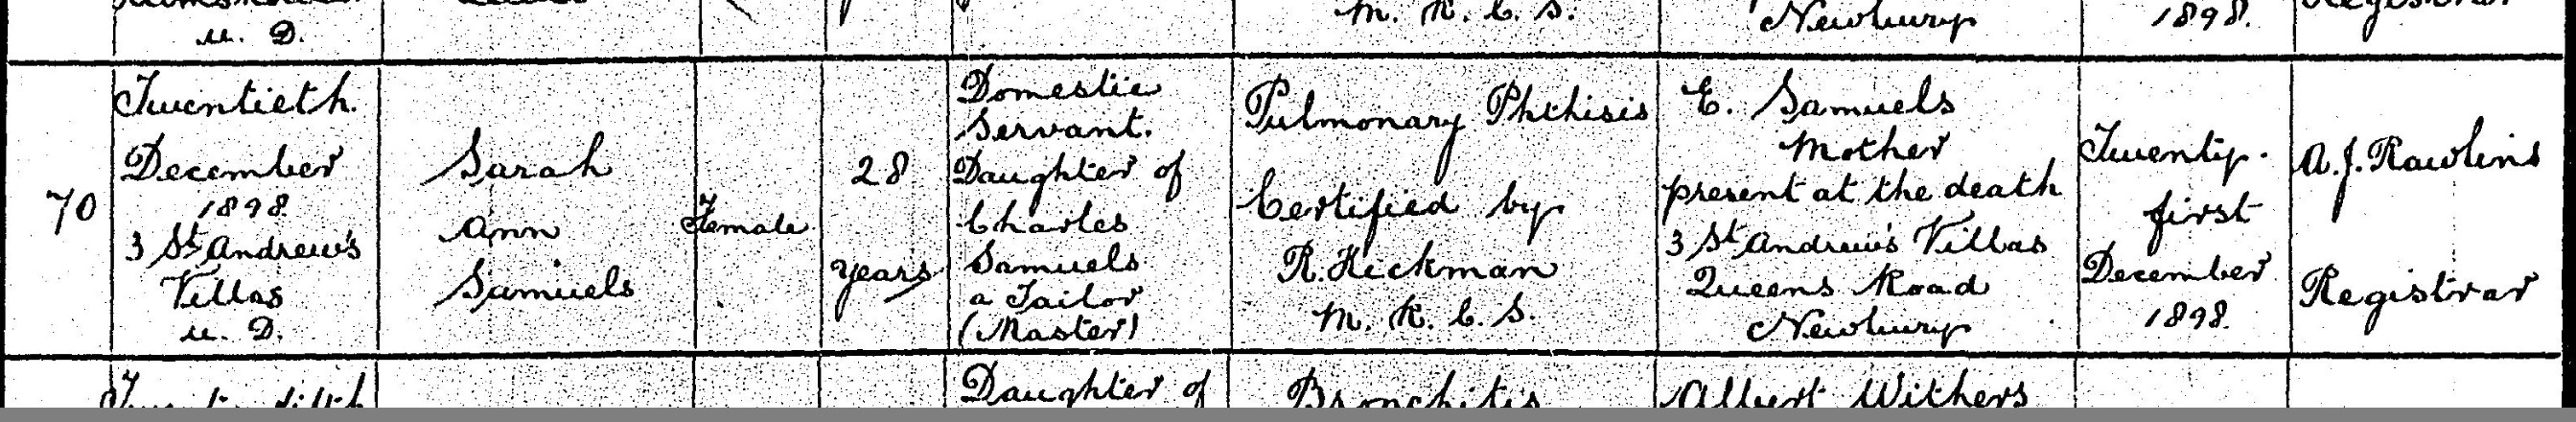 M. R. C. S.
Newbury
1898.
Registrar
u. D.
70
Twentieth.
December
1898
3 St Andrew's
Villas
u. D.
Sarah
Ann
Samuels
Female
28
years
Domestic
Servant.
Daughter of
Charles
Samuels
a Tailor
(Master)
Pulmonary Phthisis
Certified by
R. Hickman
M. R. C. S.
E. Samuels
Mother
present at the death
3 St Andrew's Villas
Queens Road
Newbury
Twenty-
first
December
1898.
A. J. Rawlins
Registrar
Daughter of
Bronchitis
Albert Withers